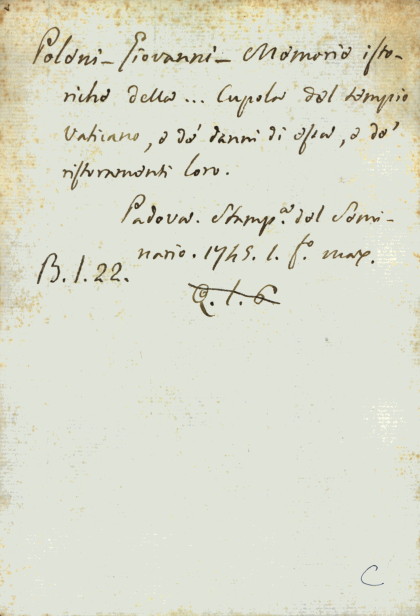 Poleni - Giovanni - Memorie isto-
riche della ... Cupola del tempio
Vaticano, e de' danni di essa, e de'
ristoramenti loro.
Padova. Stamp.ª del Semi-
nario. 1745. 1. f.º max.
B. 1. 22.
Q. 1. 6
C